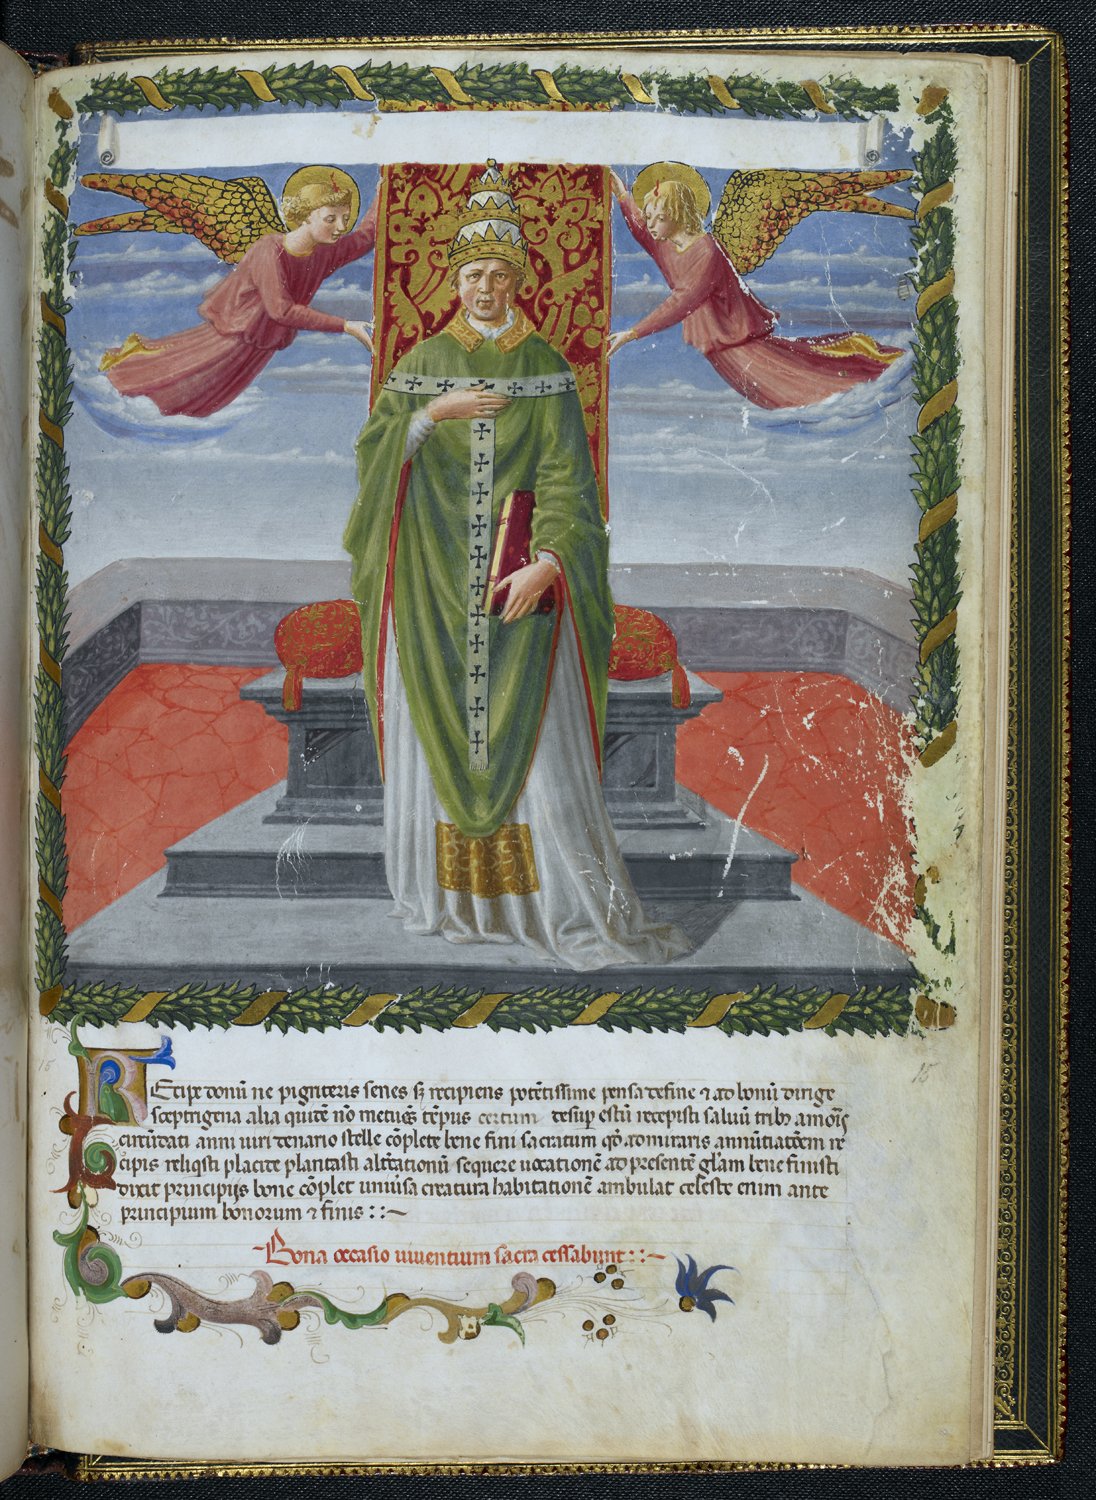 Ecipe donū ne pigriteris senes sꝫ recipiens potētissime pensa define ⁊ ad bonū dirige
sceptrigena alia quitē nō metuas tēpus certum desup̱ estū recepisti salvū tribᵒ amoīs
circūdati anni viri denario stelle cōplete bene fini sacratum qō admiraris annūtiatōem re
cipis reliqsti placite plantasti altēationū sequere vocationē ad presentē gl̄am bene finisti
dixit principijs bone cōplet univsa creatura habitationē ambulat celeste enim ante
principium bonorum ⁊ finis : : ~
Bona occasio viventium sacra cessabunt : : ~
15
15